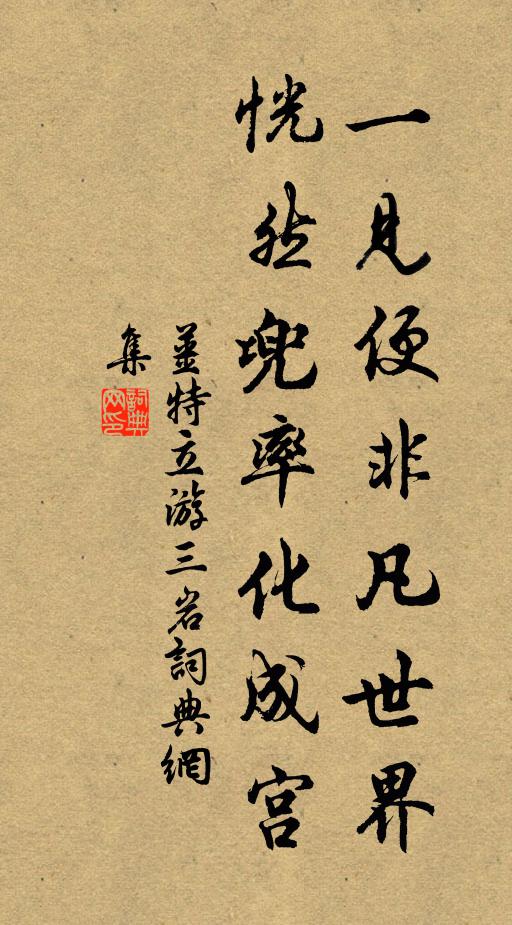 一見便非凡世界
恍然兜率化成宮
姜特立游三岩詞典網
集
詞典網印